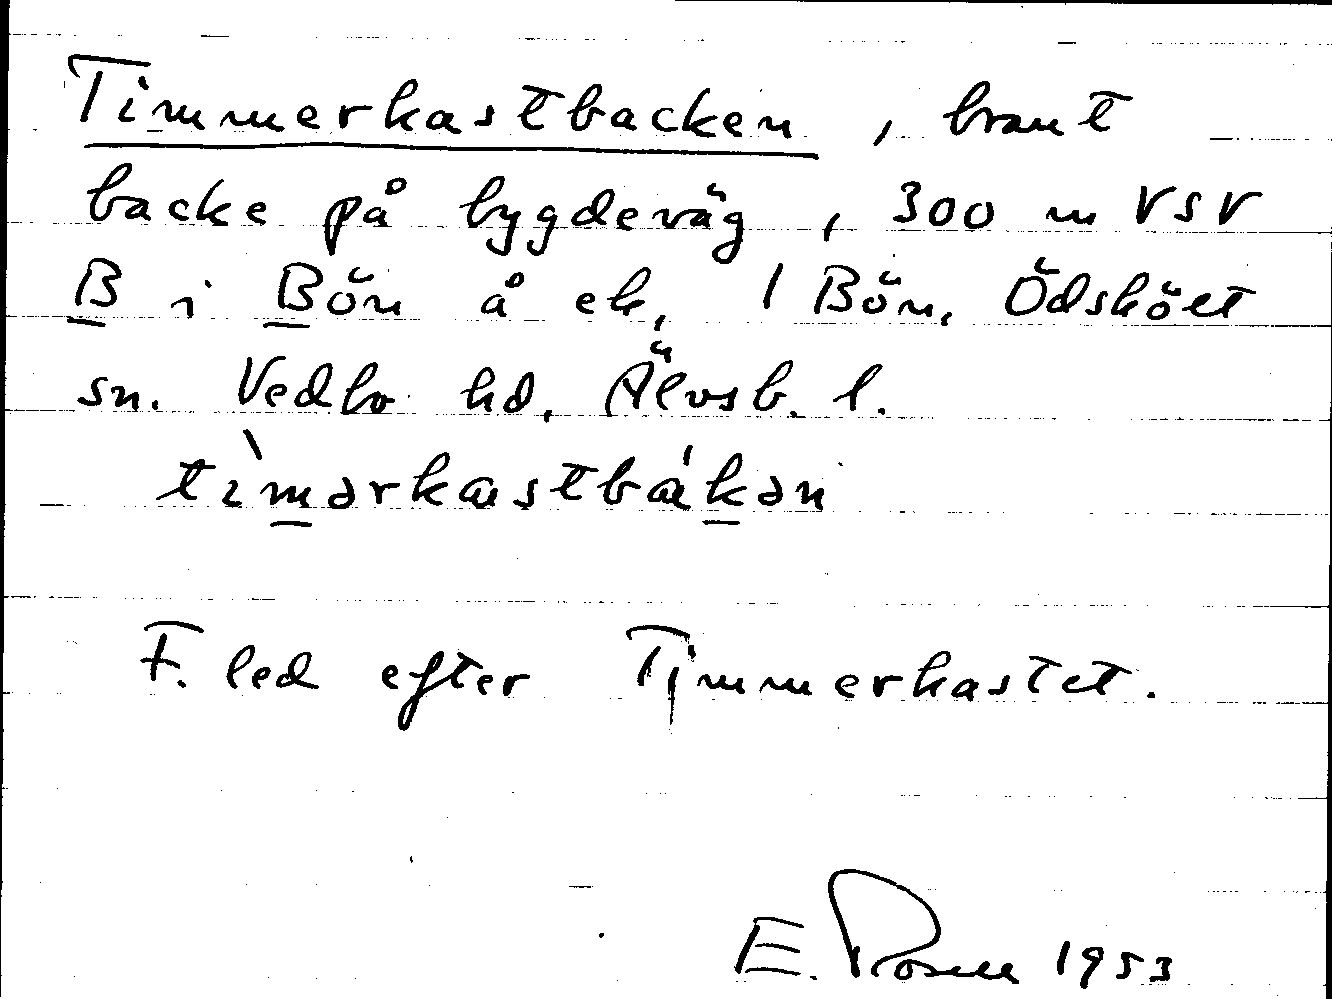 Timmerkastbacken, brant
backe på bygdeväg, 300 m VSV
B i Bön å ek, 1 Bön, Ödskölt
sn. Vedbo hd, Älvsb. l.
tìmərkastbákən
F. led efter Timmerkastet.
E. Rosell 1953